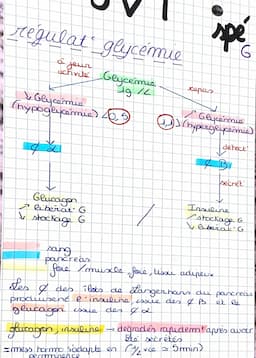 SVT spé
6
régulat° glycémie
à jeun
activité
Glycémie
1g/L
repas
↘ Glycémie
(hypoglycémie) < 0,5
↗ Glycémie
(hyperglycémie)
détect°
¢ α
¢ β
sécrét°
Glucagon
↗ libérat° G
↘ stockage G
/
Insuline
↗ stockage G
↘ libérat° G
sang
pancréas
foie / muscle foie, tissu adipeux
Les ¢ des îlots de Langerhans du pancréas
produisent l'insuline, issue des ¢ β et le
glucagon issue des ¢ α
glucagon, insuline → dégradés rapidement après avoir
été sécrétés